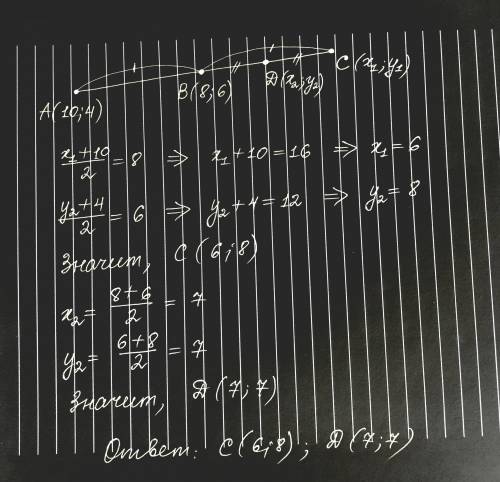 C(x₁;y₁)
A(10;4) B(8;6) D(x₂;y₂)
(x₁+10)/2 = 8 ⇒ x₁+10=16 ⇒ x₁=6
(y₂+4)/2 = 6 ⇒ y₂+4=12 ⇒ y₂=8
Значит, C(6;8)
x₂ = (8+6)/2 = 7
y₂ = (6+8)/2 = 7
Значит, D(7;7)
Ответ: C(6;8); D(7;7)